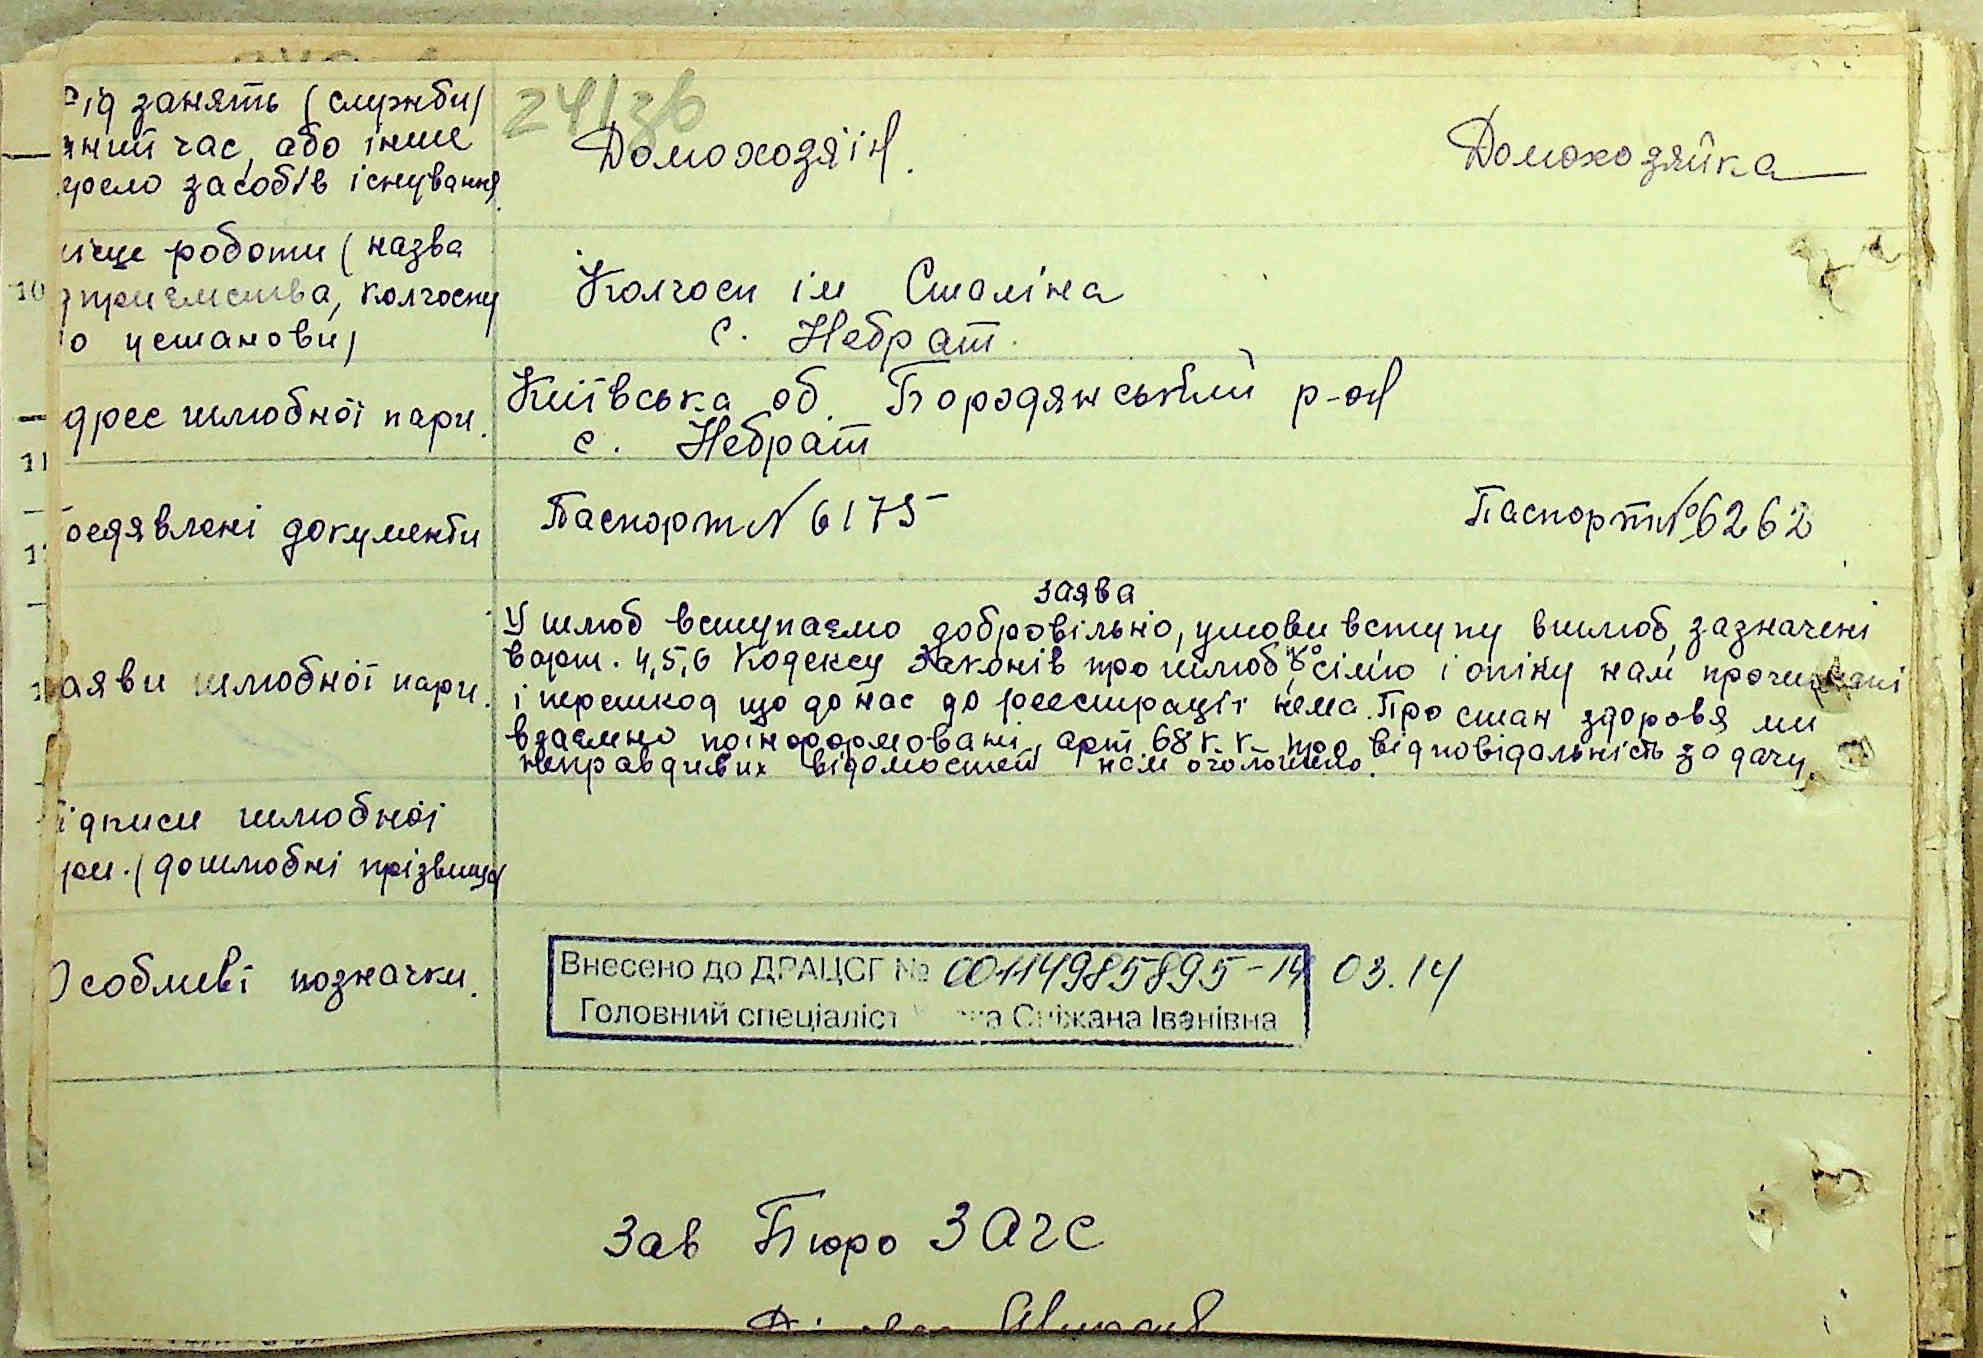 241зв
рід занять (служби)
аний час, або інше
ерело засобів існування.
Домохозяїн.
Домохозяйка
10
місце роботи (назва
дприємства, колгоспу
о установи)
Колгосп ім Сталіна
с. Небрат.
11
дрес шлюбної пари.
Київська об. Бородянський р-он
с. Небрат
редявлені документи
Паспорт N 6175
Паспорт № 6262
аяви шлюбної пари.
заява
У шлюб вступаємо добровільно, умови вступу вшлюб, зазначені
варт. 4,5,6 Кодексу Законів про шлюб, сімю і опіку нам прочитані
і перешкод що до нас до реєстрації нема. Про стан здоровя ми
взаємно поінформовані, арт. 68 к.к. про відповідальність за дачу
неправдивих відомостей нам оголошено.
ідписи шлюбної
ри. (дошлюбні прізвища)
Особливі позначки.
Внесено до ДРАЦСГ № 00114985895-14 03.14
Головний спеціаліст Сніжана Іванівна
Зав Бюро ЗАГС